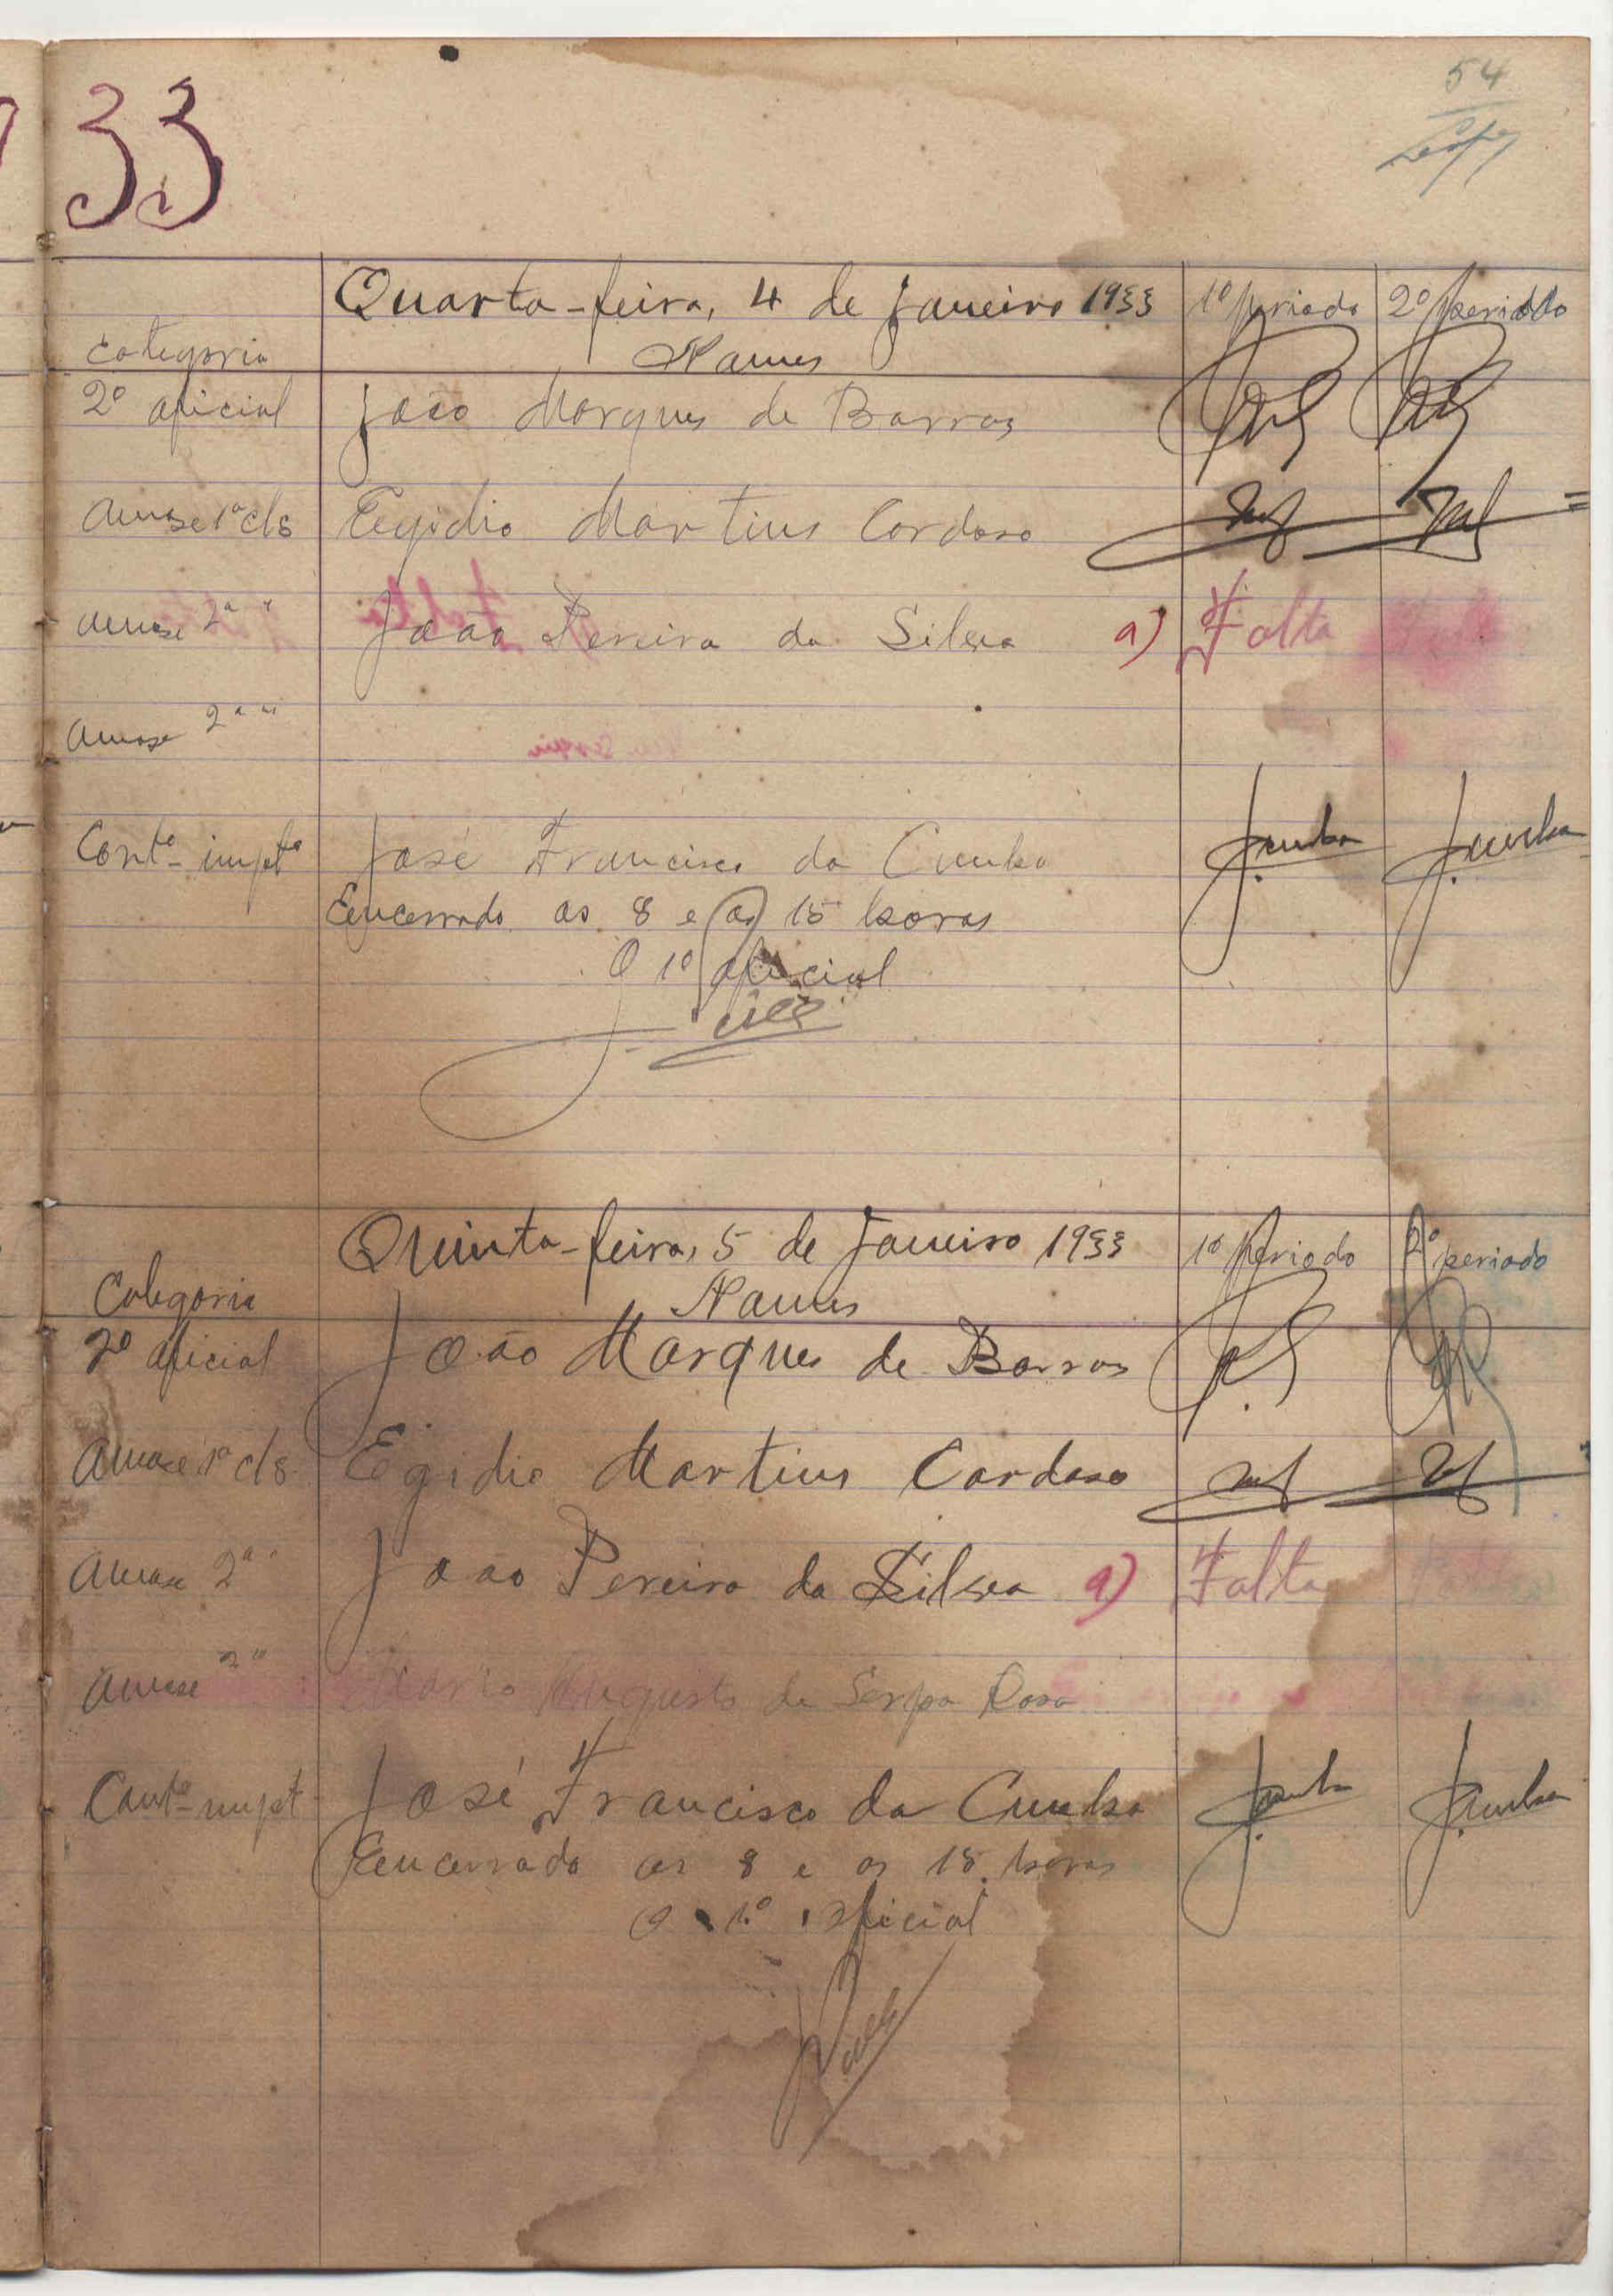 33
54
Quarta-feira, 4 de Janeiro 1933 1º periodo 2º periodo
Categoria Nomes
2º oficial João Marques de Barros
Amase 1ª cls Egidio Martins Cardoso
Amase 2ª " João Pereira da Silva a) Falta Falta
Amase 2ª "
Contº impto José Francisco da Cunha JCunha JCunha
Encerrado as 8 e as 15 horas
O 1º oficial
Quinta-feira, 5 de Janeiro 1933 1º periodo 2º periodo
Categoria Nomes
2º oficial João Marques de Barros
Amase 1ª cls Egidio Martins Cardoso
Amase 2ª " João Pereira da Silva a) Falta
Amase 2ª " Mario Augusto de Serpa Rosa
Contº impt José Francisco da Cunha JCunha JCunha
Encerrado as 8 e as 15 horas
O 1º oficial